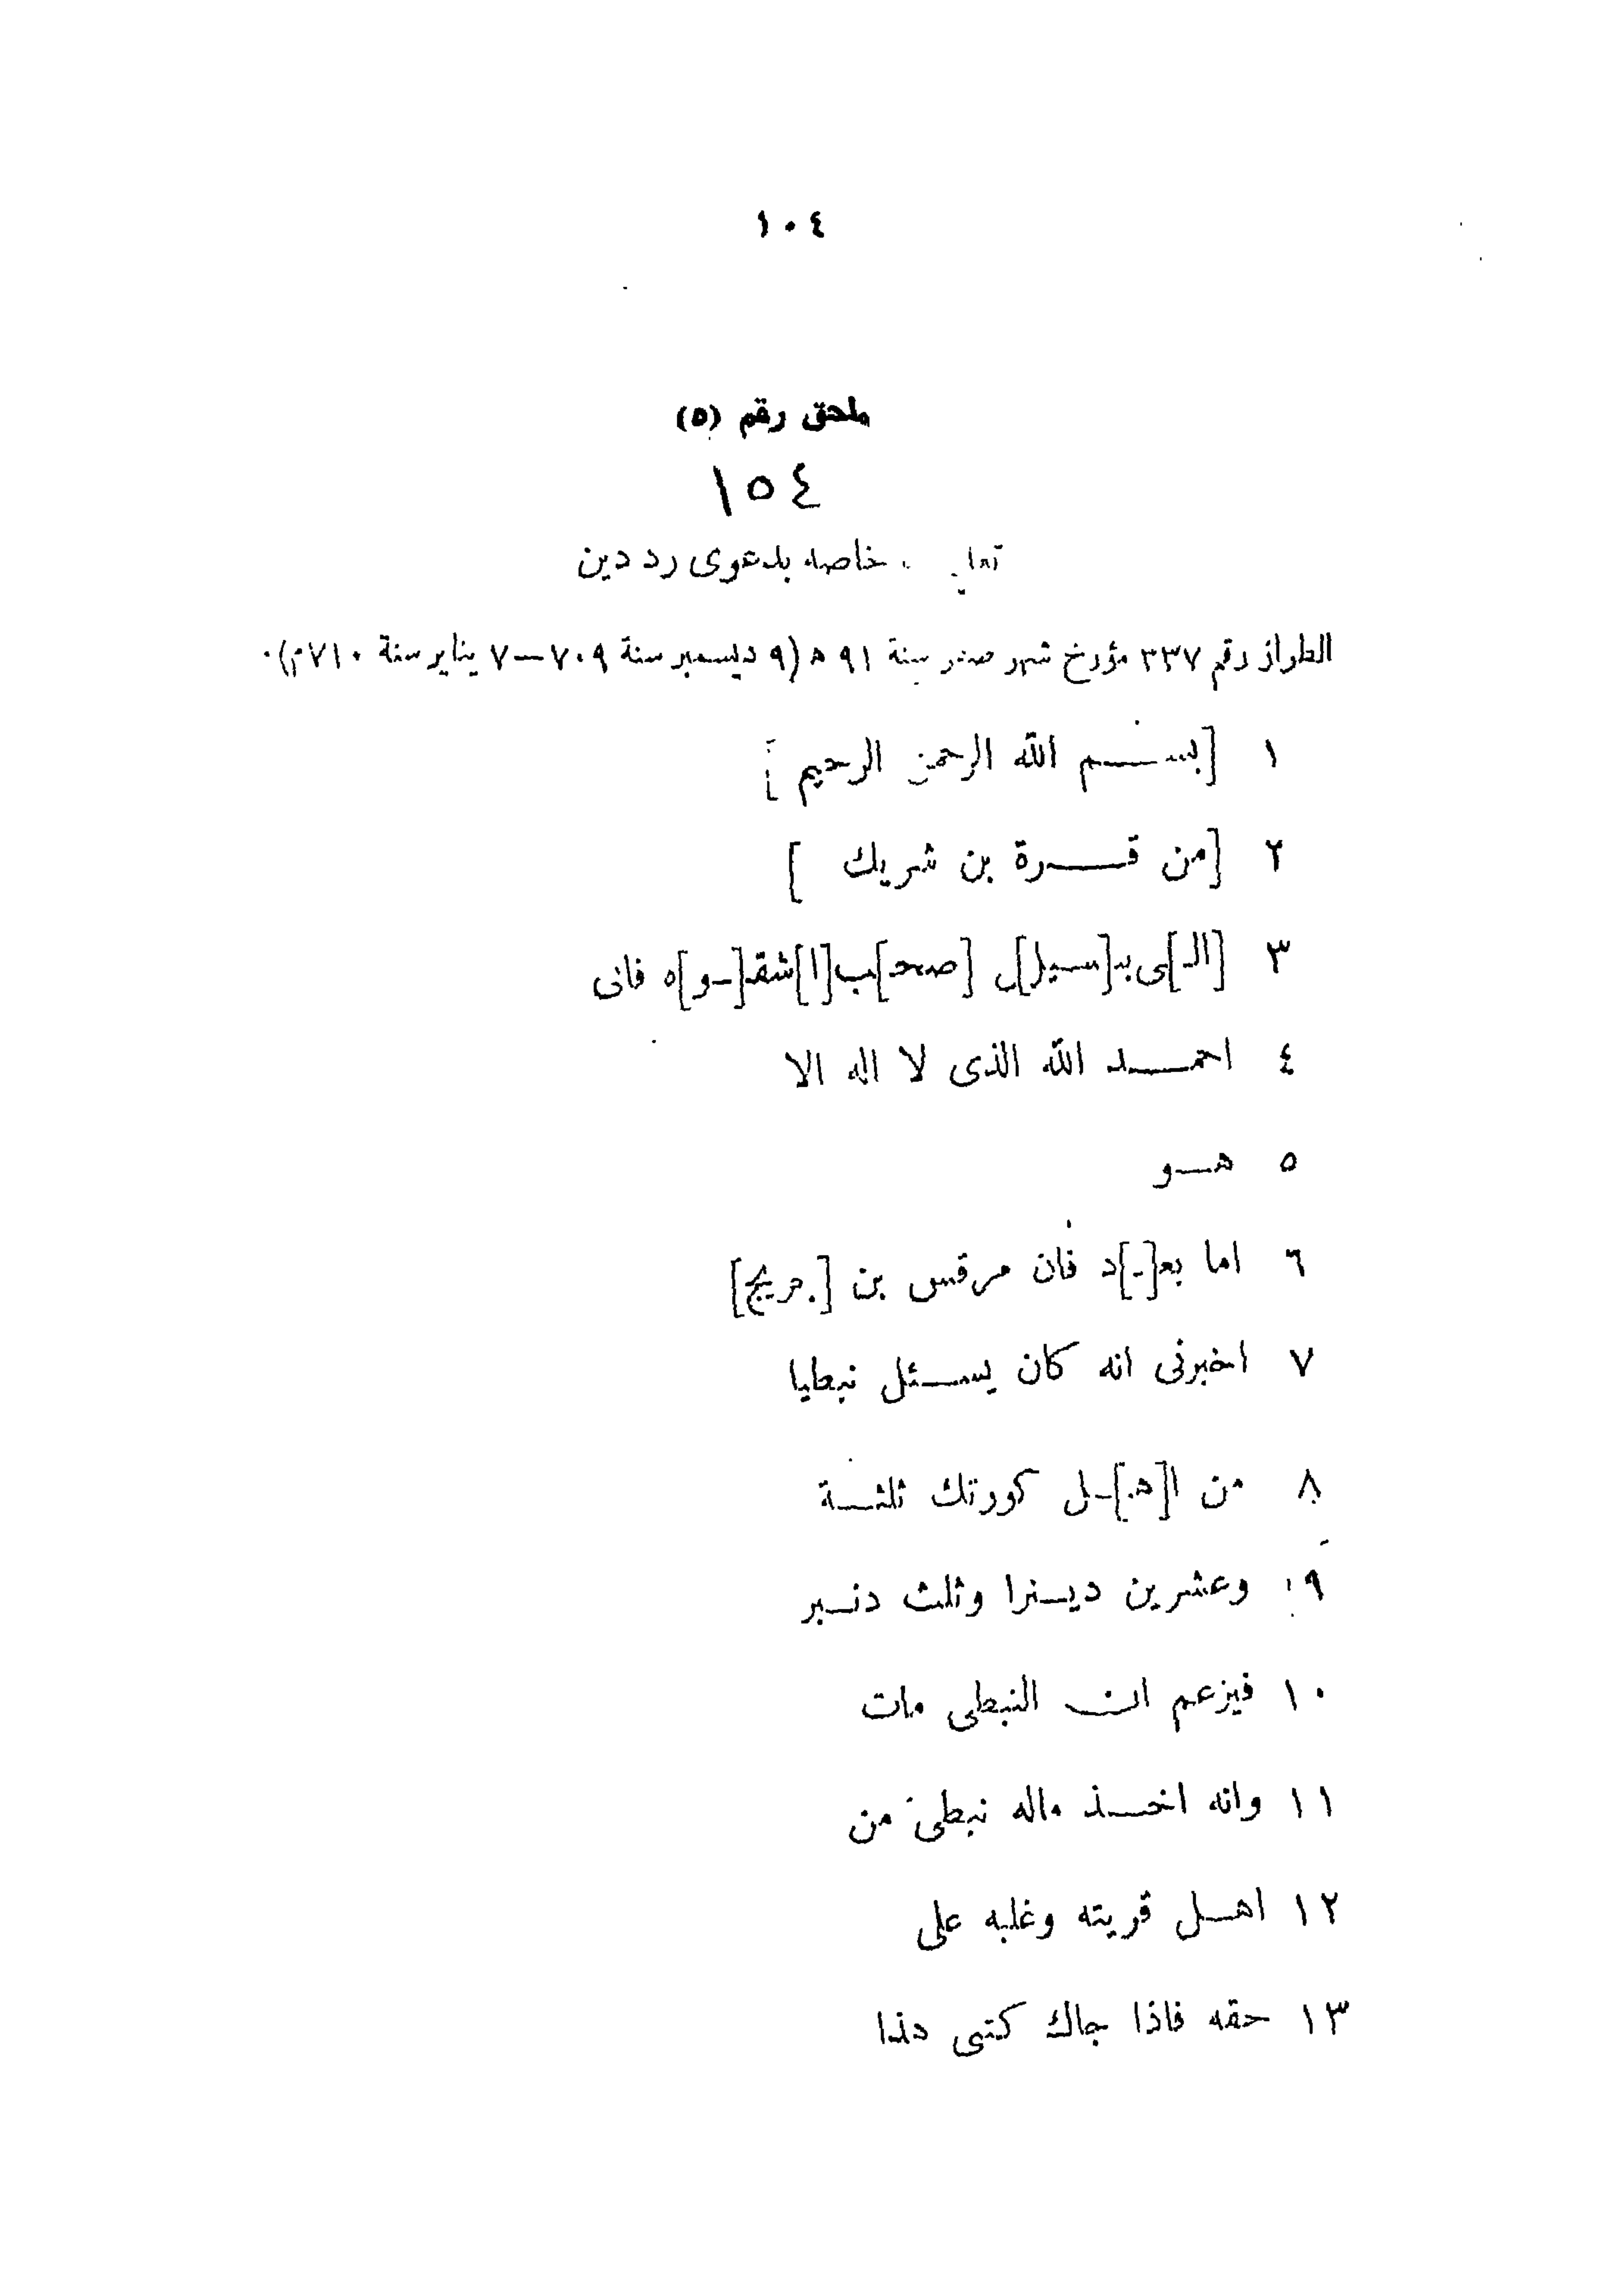 ١٠٤
ملحق رقم (٥)
١٥٤
خاصة بدعوى رد دين
الطراز رقم ٣٣٧ مؤرخ شهر صفر سنة ٩١ ه (٩ ديسمبر سنة ٧٠٩ — ٧ يناير سنة ٧١٠م).
١ [بســـم الله الرحمن الرحيم]
٢ [من قـــرة بن شريك ]
٣ [الـ]ـى بـ[ـسيل]ل [صحـ]ـب [ا]شقـ[ـو]ه فانى
٤ احمـــد الله الذى لا اله الا
٥ هــو
٦ اما بعـ[ـ]د فان مرقس بن [جريج]
٧ اخبرنى انه كان يســئل نبطيا
٨ من ا[هـ]ـل كورتك ثلثــة
٩ وعشرين ديــنرا وثلث دنــير
١٠ فيزعم ان النبطى مات
١١ وانه اخــذ ماله نبطى من
١٢ اهــل قريته وغلبه على
١٣ حقه فاذا جاك كتبى هذا